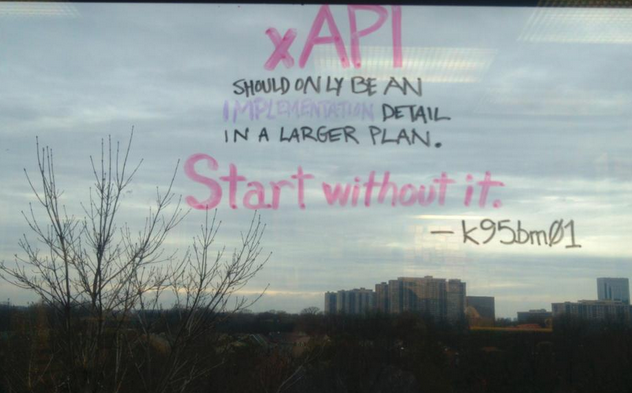 xAPI
SHOULD ONLY BE AN
IMPLEMENTATION DETAIL
IN A LARGER PLAN.
Start without it.
— k95bmØ1